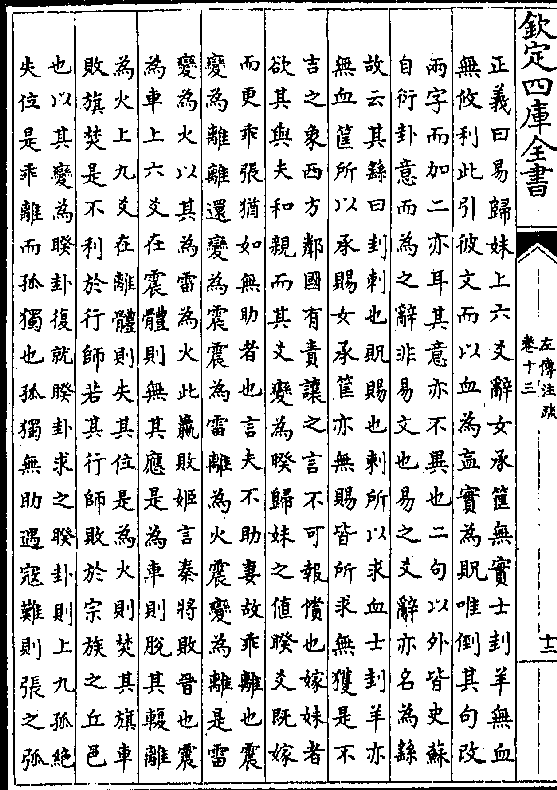 欽定四庫全書
左傳注疏
卷十三
十二
正義曰易歸妹上六爻辭女承筐無實士刲羊無血
無攸利此引彼文而以血為衁實為貺唯倒其句改
兩字而加二亦耳其意亦不異也二句以外皆史蘇
自衍卦意而為之辭非易文也易之爻辭亦名為繇
故云其繇曰刲刺也貺賜也刺所以求血士刲羊亦
無血筐所以承賜女承筐亦無賜皆所求無獲是不
吉之象西方鄰國有責讓之言不可報償也嫁妹者
欲其與夫和親而其爻變為睽歸妹之值睽爻既嫁
而更乖張猶如無助者也言夫不助妻故乖離也震
變為離離還變為震震為雷離為火震變為離是雷
變為火以其為雷為火此嬴敗姬言秦將敗晉也震
為車上六爻在震體則無其應是為車則脫其輹離
為火上九爻在離體則失其位是為火則焚其旗車
敗旗焚是不利於行師若其行師敗於宗族之丘邑
也以其變為睽卦復就睽卦求之睽卦則上九孤絕
失位是乖離而孤獨也孤獨無助遇寇難則張之弧